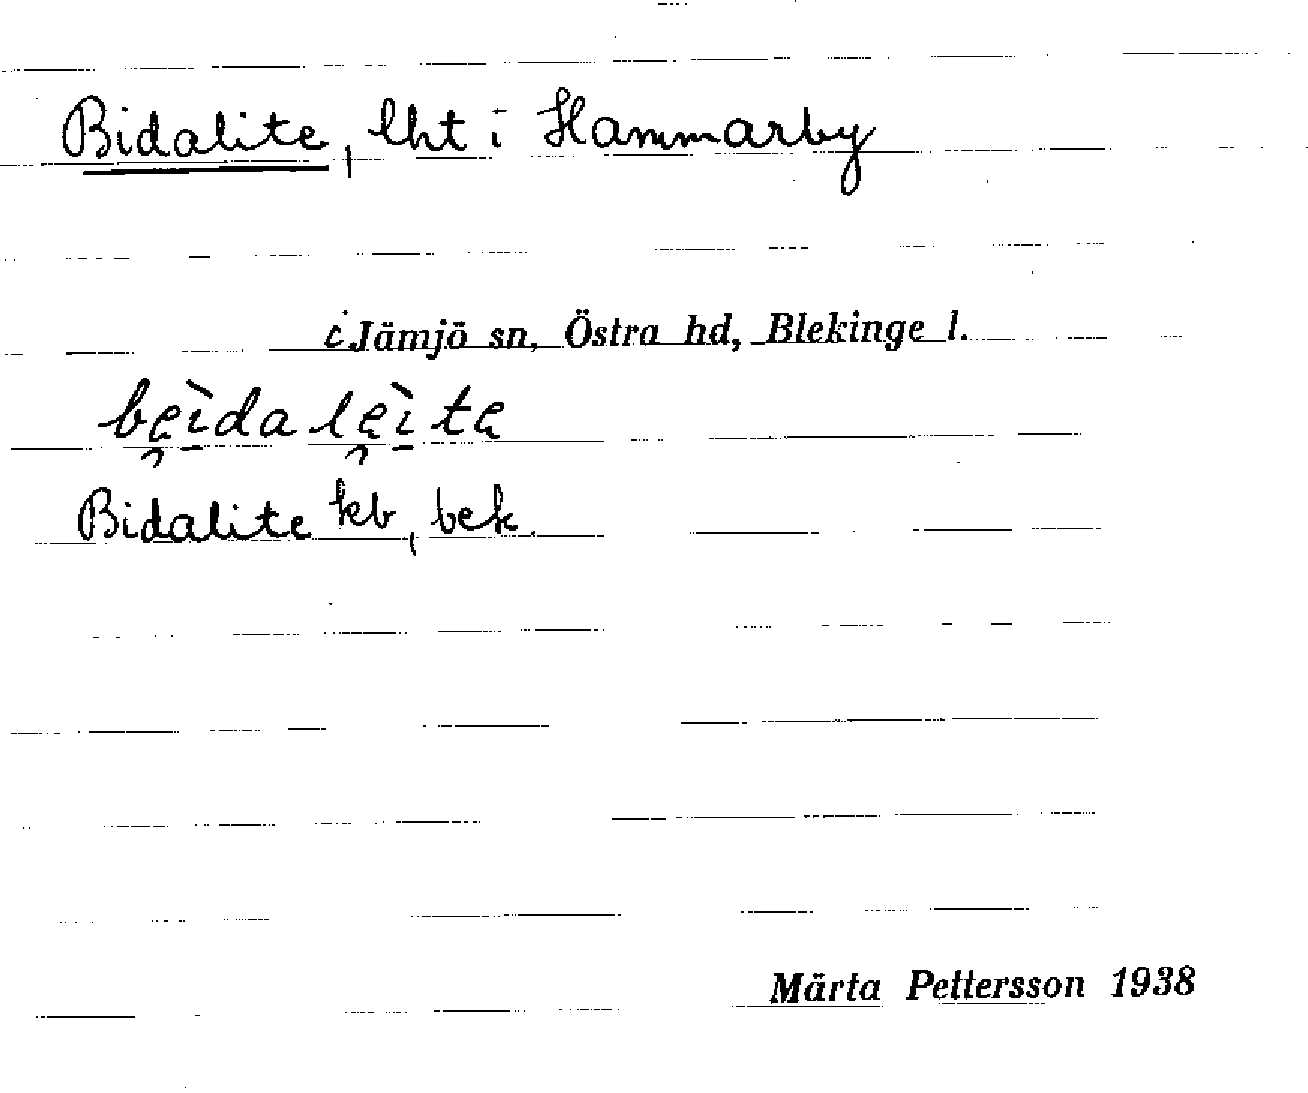 Bidalite, lht i Hammarby
i Jämjö sn, Östra hd, Blekinge l.
be̯ı̱̀da le̯ı̱̀te
Bidalite kb, bek.
Märta Pettersson 1938